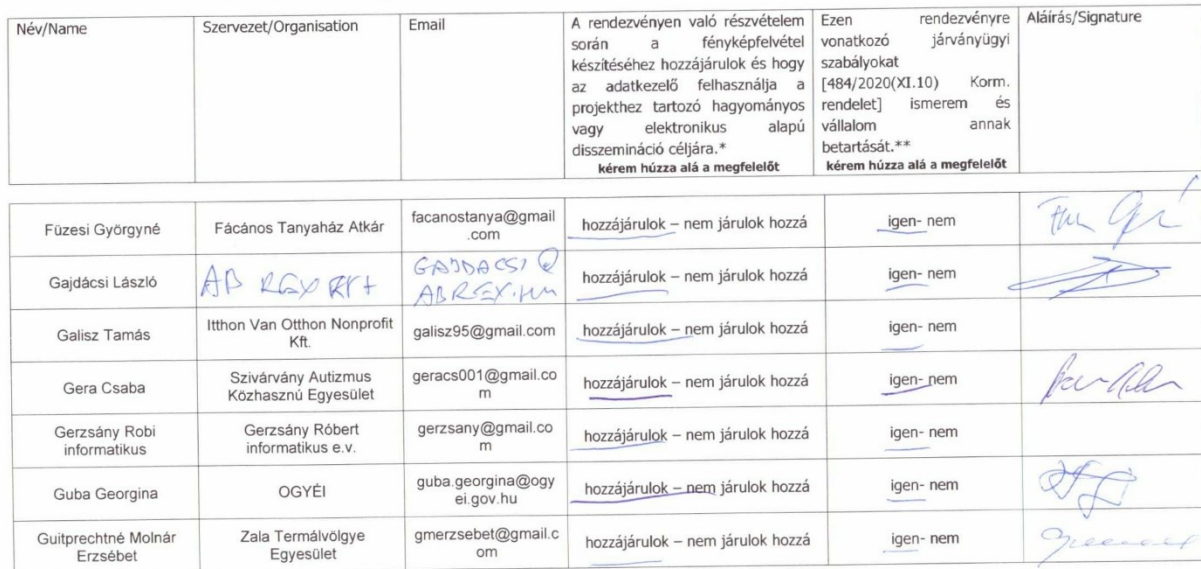 Név/Name
Szervezet/Organisation
Email
A rendezvényen való részvételem
során a fényképfelvétel
készítéséhez hozzájárulok és hogy
az adatkezelő felhasználja a
projekthez tartozó hagyományos
vagy elektronikus alapú
disszemináció céljára.*
kérem húzza alá a megfelelőt
Ezen rendezvényre
vonatkozó járványügyi
szabályokat
[484/2020(XI.10) Korm.
rendelet] ismerem és
vállalom annak
betartását.**
kérem húzza alá a megfelelőt
Aláírás/Signature
Füzesi Györgyné
Fácános Tanyaház Atkár
facanostanya@gmail
.com
hozzájárulok – nem járulok hozzá
igen- nem
Gajdácsi László
AB REX KFT
GAJDACSI@
ABREX.HU
hozzájárulok – nem járulok hozzá
igen- nem
Galisz Tamás
Itthon Van Otthon Nonprofit
Kft.
galisz95@gmail.com
hozzájárulok – nem járulok hozzá
igen- nem
Gera Csaba
Szivárvány Autizmus
Közhasznú Egyesület
geracs001@gmail.co
m
hozzájárulok – nem járulok hozzá
igen- nem
Gerzsány Robi
informatikus
Gerzsány Róbert
informatikus e.v.
gerzsany@gmail.co
m
hozzájárulok – nem járulok hozzá
igen- nem
Guba Georgina
OGYÉI
guba.georgina@ogy
ei.gov.hu
hozzájárulok – nem járulok hozzá
igen- nem
Guitprechtné Molnár
Erzsébet
Zala Termálvölgye
Egyesület
gmerzsebet@gmail.c
om
hozzájárulok – nem járulok hozzá
igen- nem